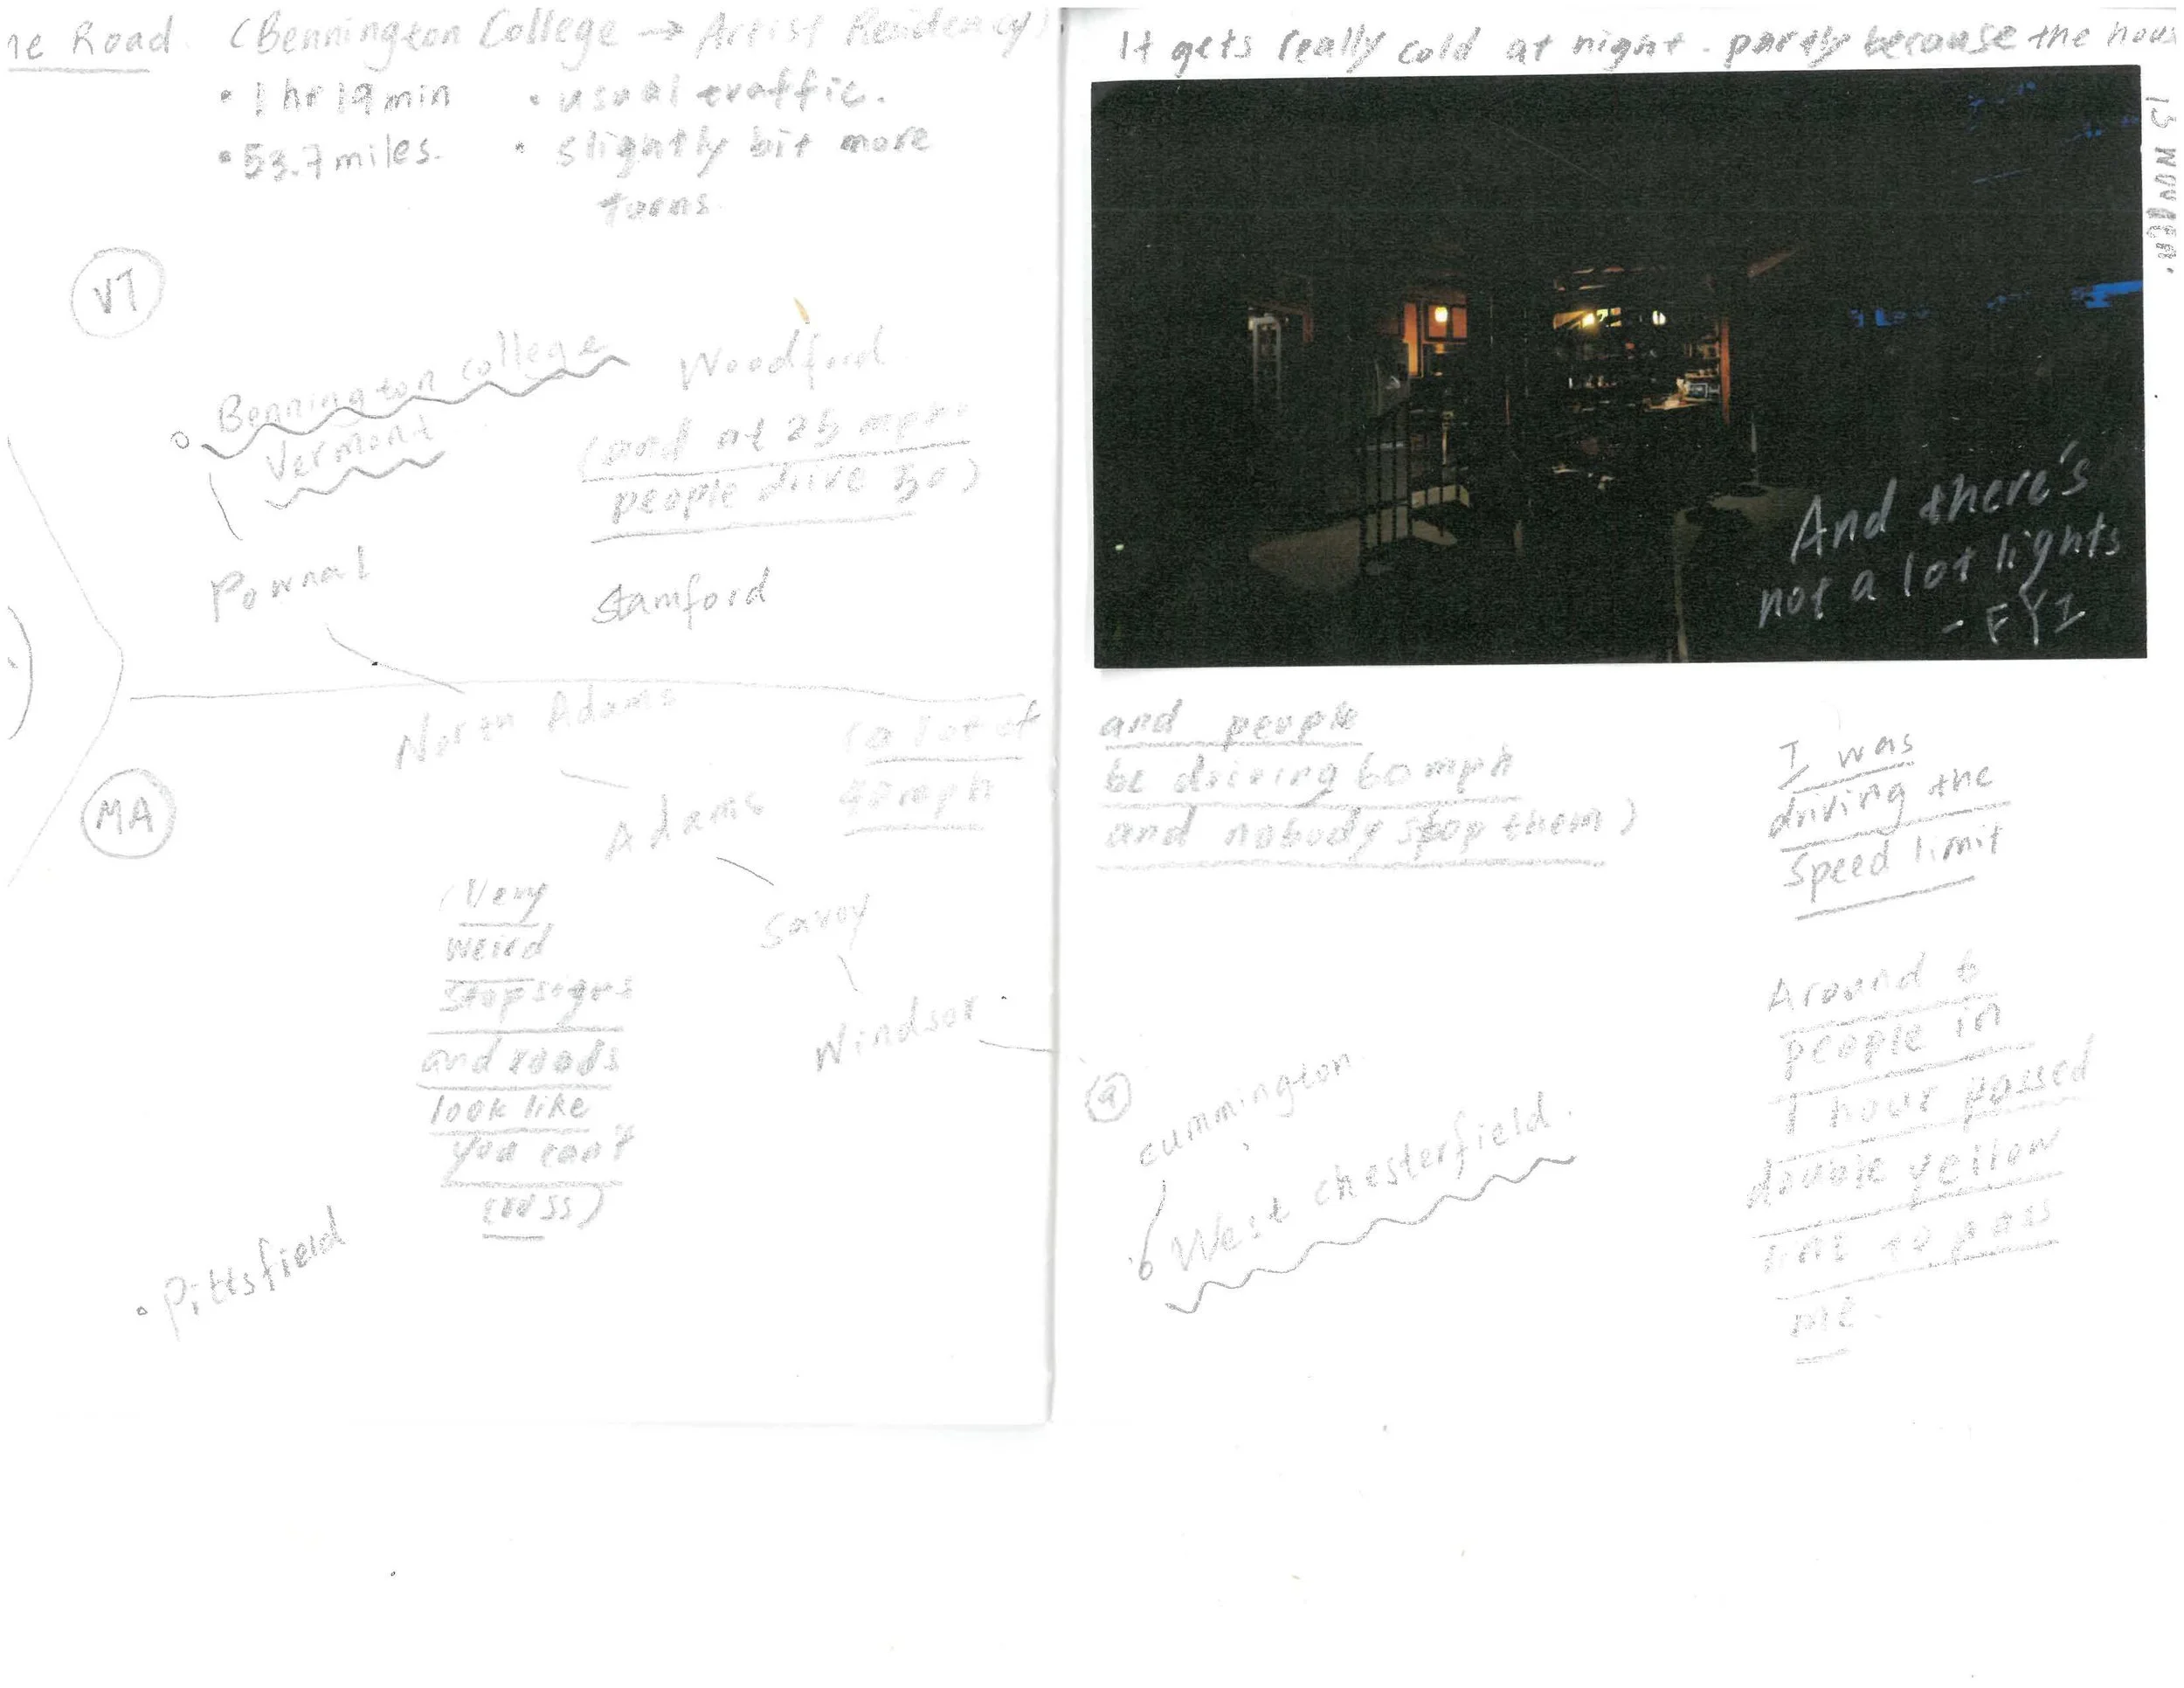 ne Road. (Bennington College → Artist Residency)
• 1 hr 19 min
• 53.7 miles.
• usual traffic.
• slightly bit more
turns.
VT
Bennington college
Vermont
Woodford
(and at 25 mph
people drive 50)
Pownal
Stamford
North Adams
MA
Adams
(a lot of
40 mph
(Very
weird
stop signs
and roads
look like
you can't
cross)
Savoy
Windsor.
• Pittsfield
It gets really cold at night - partly because the hous
is
And there's
not a lot lights
- FYI
and people
be driving 60 mph
and nobody stop them)
I was
driving the
speed limit
Around 6
people in
1 hour passed
double yellow
line to pass
me.
9
cummington
West chesterfield.